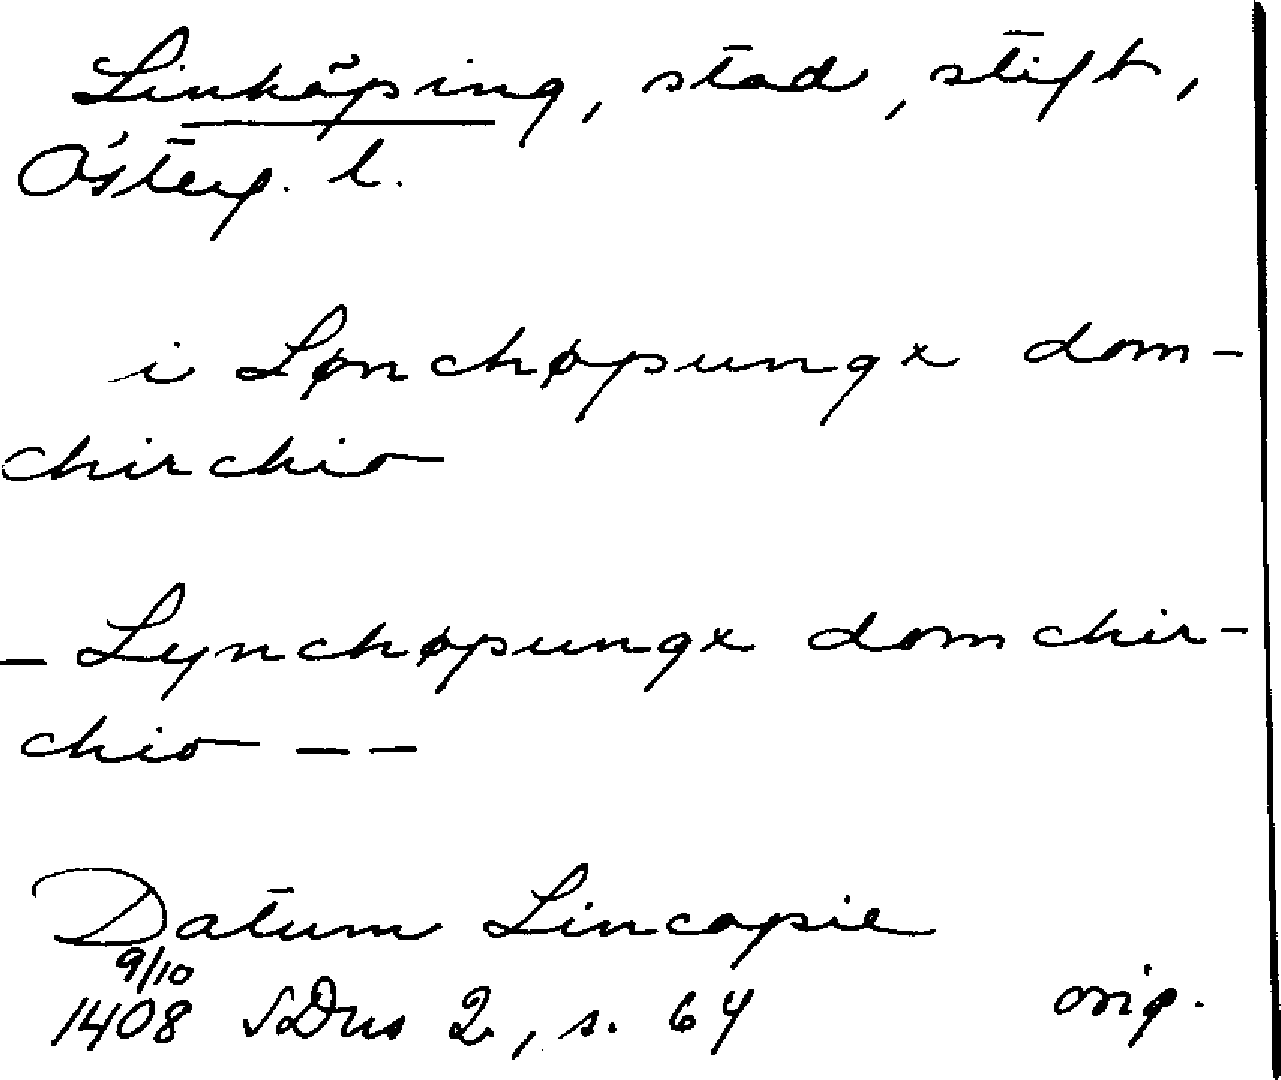 Linköping, stad, stift,
Österg. l.
i Lønchøpungx dom-
chirchio
- Lynchøpungx domchir-
chio - -
Datum Lincopie
9/10
1408 SDns 2, s. 64 orig.